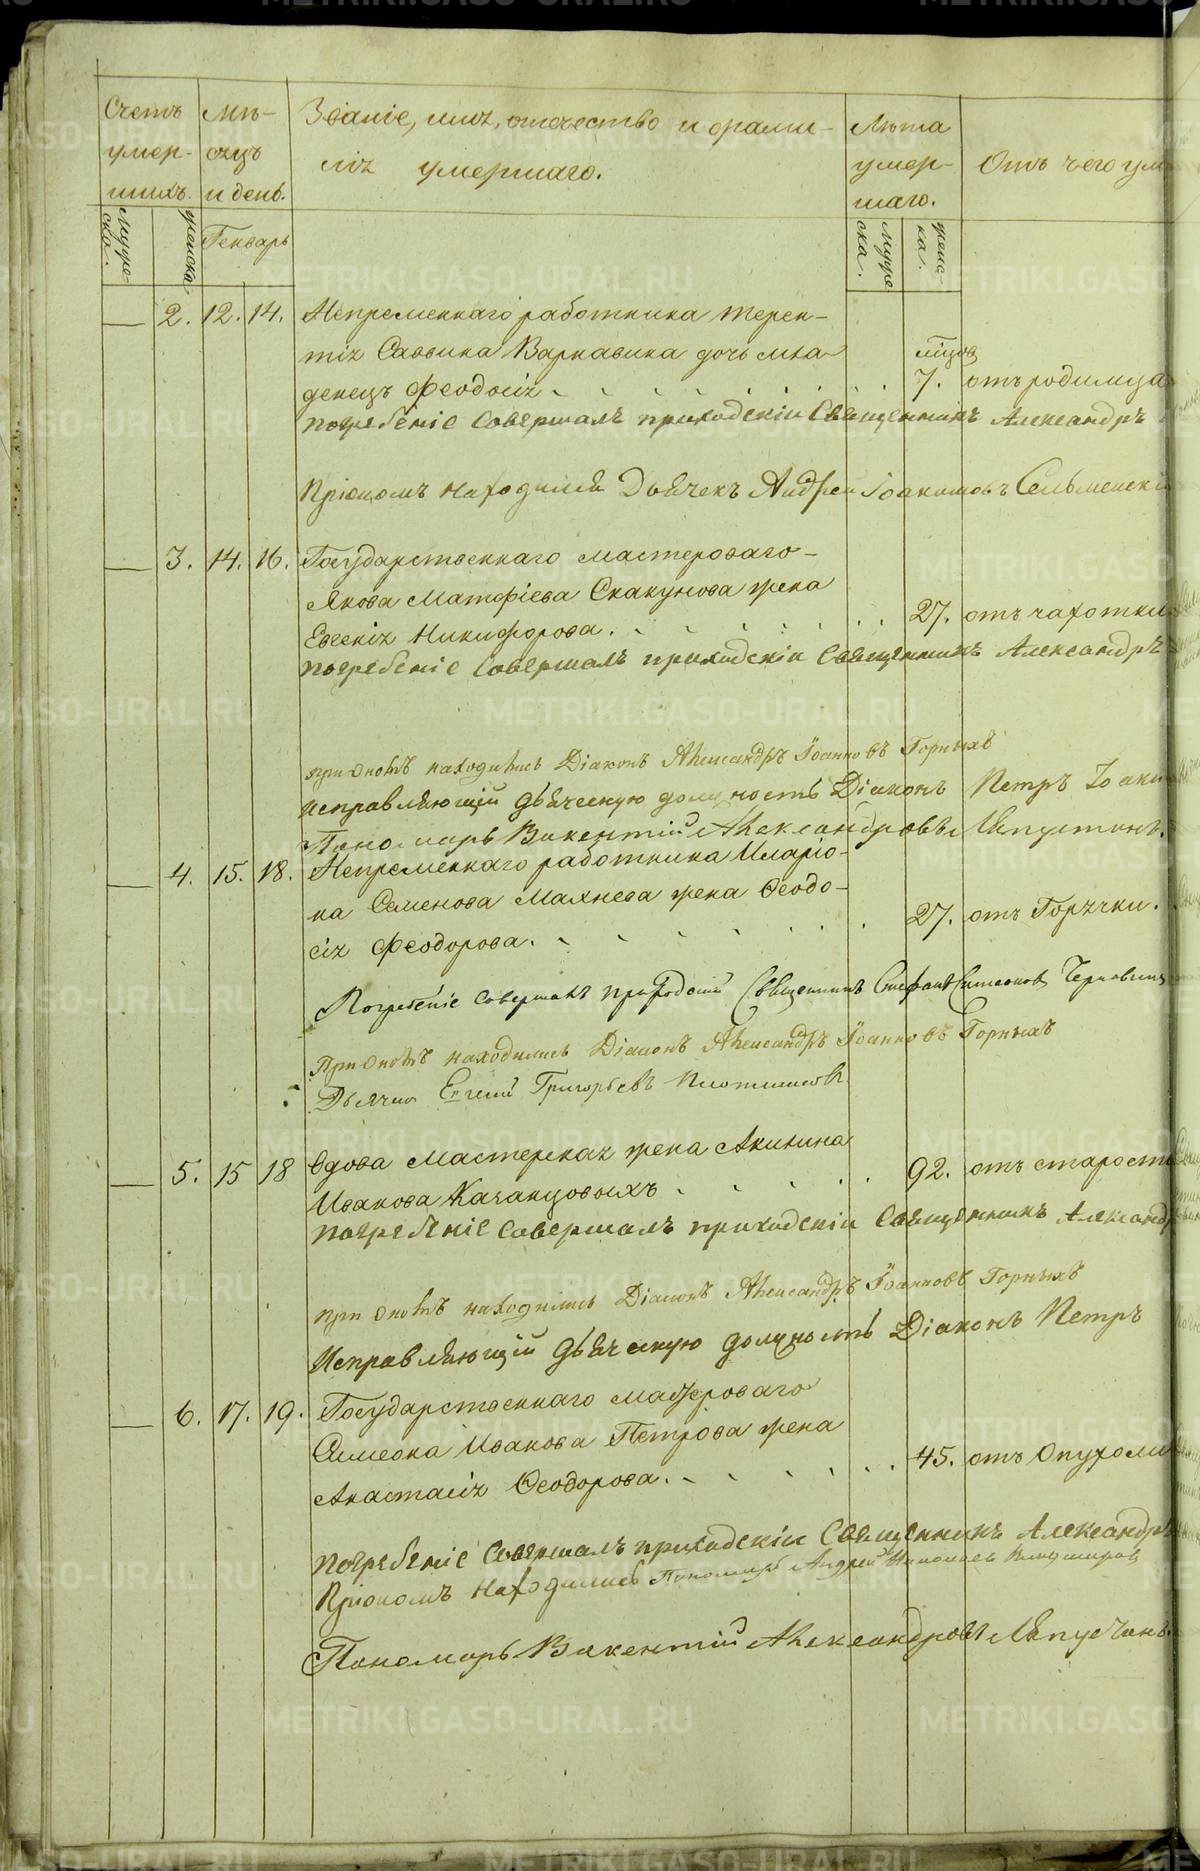 Счетъ умер-шихъ.
Мѣ-сяцъ и день.
Званіе, имя, отечество и фами-
лія умершаго.
Лѣта умер-шаго.
Отъ чего ум
мужеска.
женска
Генварь
мужеска.
женска.
— 2. 12. 14. Непременнаго работника Терен-
тія Саввина Варнавина дочь мла
денецъ Феодосія . . . 7. отъ родимца
Погребеніе совершалъ приходскіи Священникъ Александръ
При ономъ находился Дьячекъ Андреи Іоакимовъ Сельменскі
— 3. 14. 16. Государственнаго мастероваго
Якова Матфіева Скакунова жена
Евгенія Никифорова . . . 27. отъ чахотки
Погребеніе совершалъ приходскіи Священникъ Александръ
при ономъ находились Діаконъ Александръ Іоанновъ Горныхъ
исправляющій дьяческую должность Діаконъ Петръ Іоаки
Пономарь Викентій Александровъ Ляпустинъ.
— 4. 15. 18. Непременнаго работника Иларіо-
на Семенова Махнева жена Ѳеодо-
сія Феодорова . . . 27. отъ Горячки.
Погребеніе совершалъ приходскій Священникъ Стефанъ Симеоновъ
При ономъ находились Діаконъ Александръ Іоанновъ Горныхъ
Дьячекъ Евгеній Григорьевъ Плотниковъ
— 5. 15 18 Вдова Мастерская жена Акилина
Иванова Качанцовыхъ . . . 92. отъ старости
Погребеніе совершалъ приходскіи Священникъ Александ
при ономъ находились Діаконъ Александръ Іоанновъ Горныхъ
Исправляющій дьяческую должность Діаконъ Петръ
— 6. 17. 19. Государственнаго мастероваго
Симеона Иванова Петрова жена
Анастасія Ѳеодорова . . . 45. отъ Опухоли
Погребеніе совершалъ приходскіи Священникъ Александръ
При ономъ находились Пономарь Андрей Николаевъ
Пономарь Викентій Александровъ Ляпустинъ.
METRIKI.GASO-URAL.RU